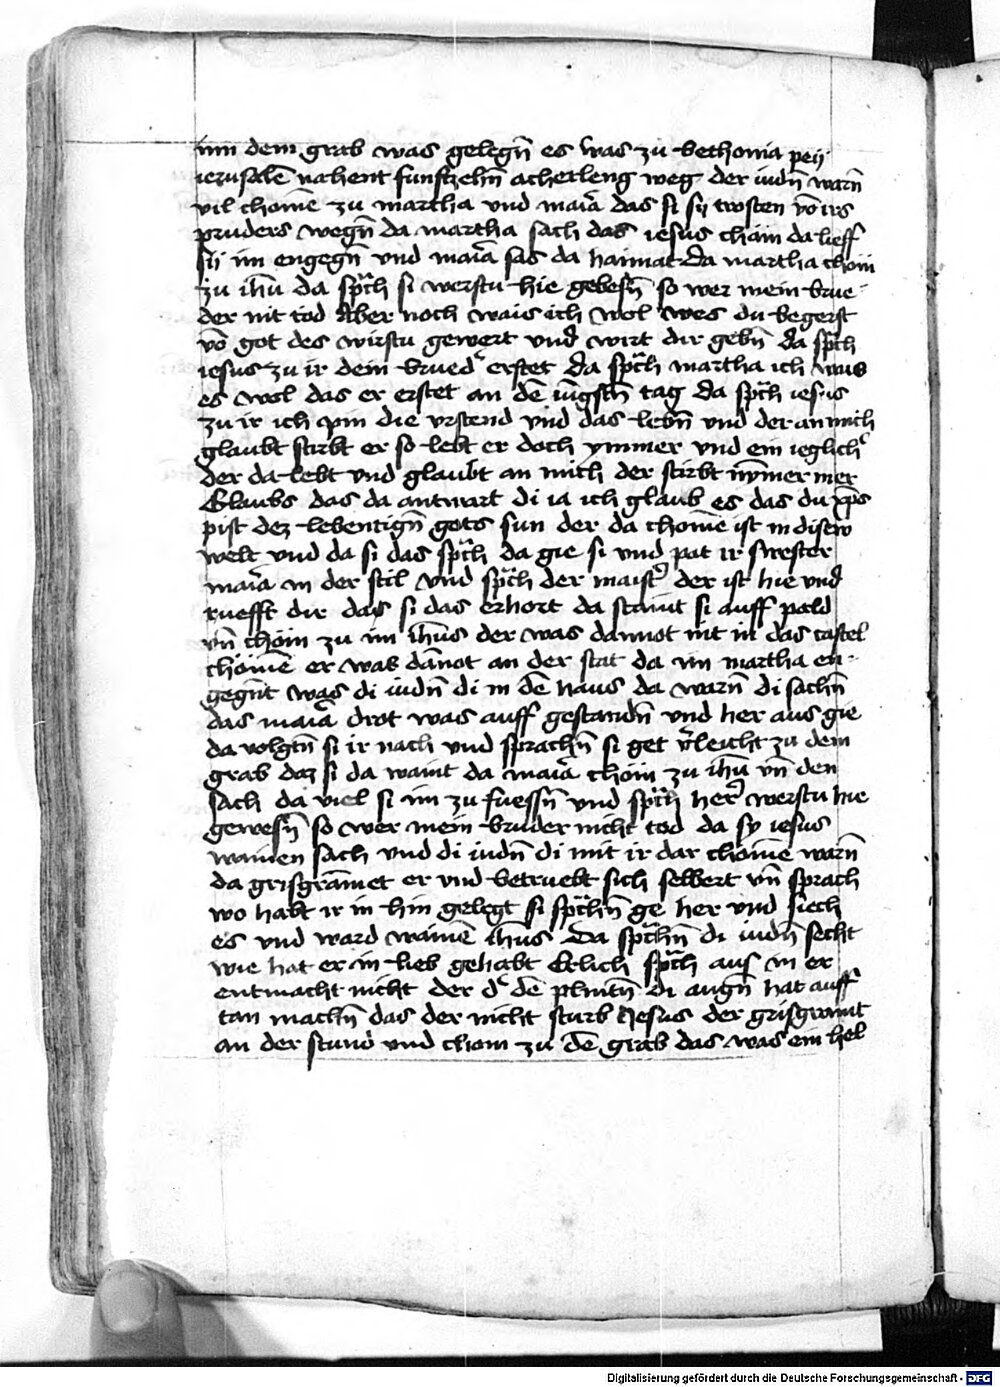 inn dem grab was gelegn̄ es was zu bethonia peÿ
ierusalē nahent funfzehn̄ acherleng weg der iudn̄ warn̄
vil chomē zu martha und maīa das si sÿ trosten vō irs
pruders wegn̄ da martha sach das iesus cham da lieff
sÿ im engegn̄ vnd maīa sas da haimat da martha chom
zu ih̄u da sp̄ch si werstu hie gebesn̄ so wer mein brue
der nit tod Aber noch wais ich wol wes du begerst
vō got des wirstu gewert vnd wirt dir gebn̄ da sp̄ch
iesus zu ir dein brued' erstet da sp̄ch martha ich wais
es wol das er erstet an dē iūgstn̄ tag da sp̄ch iesus
zu ir ich pin die vrstend vnd das lebn̄ vnd der an mich
glaubt stirbt er so lebt er doch ymmer vnd ein ieglich'
der da lebt vnd glaubt an mich der stirbt nȳmer mer
Glaubs das da antwart di ia ich glaub es das du xp̄s
pist dez lebentign̄ gots sun der da chomē ist in disew
welt vnd da si das sp̄ch da gie si vnd pat ir swester
maīa in der stil vnd sp̄ch der maist' der ist hie vnd
ruefft dir das si das erhort da staint si auff pald
vn̄ chom zu im ih̄us der was dannot nit in das castel
chomē er was dānot an der stat da im martha en
gegn̄t was di iudn̄ di in dē haus da warn̄ di sachn̄
das maīa drot was auff gestandn̄ vnd her aus gie
da volgtn̄ si ir nach vnd sprachn̄ si get v'leicht zu dem
grab daz si da waint da maīa chom zu ih̄u vn̄ den
sach da viel si im zu fuessn̄ vnd sp̄ch her' werstu hie
gewesn̄ so wer mein bruder nicht tod da sy iesus
wainen sach vnd di iudn̄ di mit ir dar chomē warn̄
da grisgrāmet er vnd betruebt sich selbert vn̄ sprach
wo habt ir in hin gelegt si sp̄chn̄ ge her vnd siech
es vnd ward wainē ih̄us da sp̄chn̄ di iudn̄ secht
wie hat er in lieb gehabt Etlich sp̄ch aus in er
entmacht nicht der d' dē plintn̄ di augn̄ hat auff
tan machn̄ das der nicht sturb Jesus der grisgramt
an der stund vnd cham zu dē grab das was ein hel
Digitalisierung gefördert durch die Deutsche Forschungsgemeinschaft - DFG